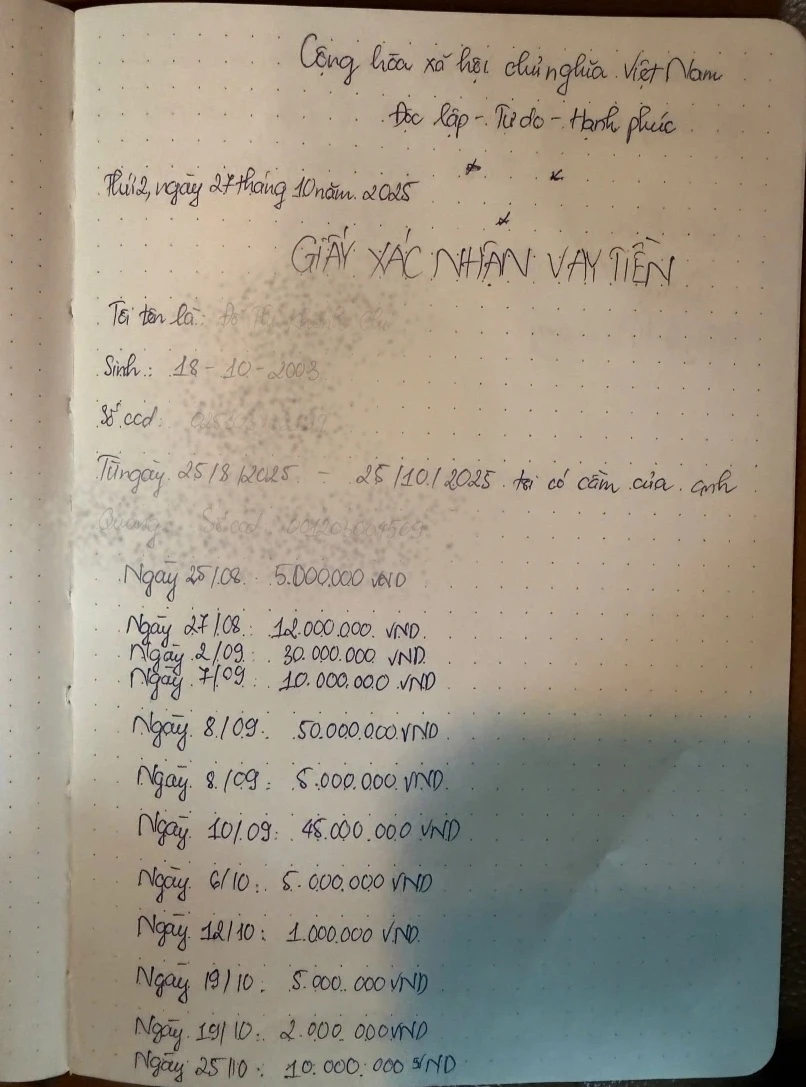 Cộng hòa xã hội chủ nghĩa Việt Nam
Độc lập - Tự do - Hạnh phúc
Thứ 2, ngày 27 tháng 10 năm 2025
GIẤY XÁC NHẬN VAY TIỀN
Tôi tên là:
Sinh: 18-10-2003
Số cccd:
Từ ngày 25/8/2025 - 25/10/2025 tôi có cầm của anh
Quang Số cccd
Ngày 25/08: 5.000.000 VND
Ngày 27/08: 12.000.000 VND
Ngày 2/09: 30.000.000 VND
Ngày 7/09: 10.000.000 VND
Ngày 8/09: 50.000.000 VND
Ngày 8/09: 5.000.000 VND
Ngày 10/09: 45.000.000 VND
Ngày 6/10: 5.000.000 VND
Ngày 12/10: 1.000.000 VND
Ngày 19/10: 5.000.000 VND
Ngày 19/10: 2.000.000 VND
Ngày 25/10: 10.000.000 VND